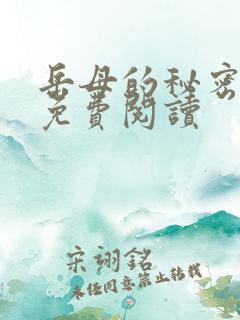 岳母的秘密
免費閱讀
宋翊銘
未經同意禁止轉載